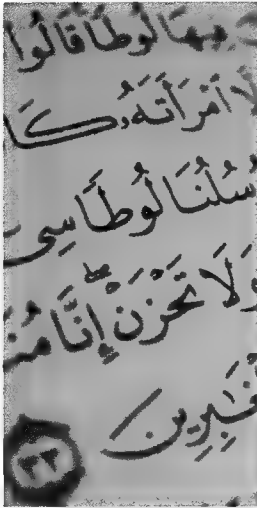 فِيهَا لُوطًا قَالُوا
لَّا ٱمْرَأَتَهُۥ كَا
سُلُنَا لُوطًا سِىٓ
وَلَا تَحْزَنْ إِنَّا مُنَ
غَٰبِرِينَ ٣٣